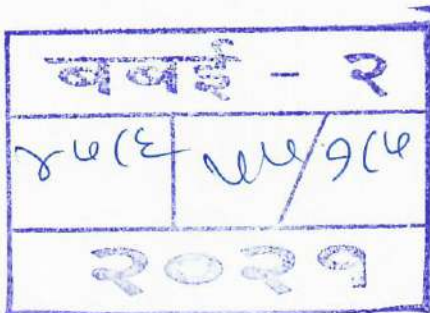 बबई - २
४५८६ ५५/१८५
२०२१